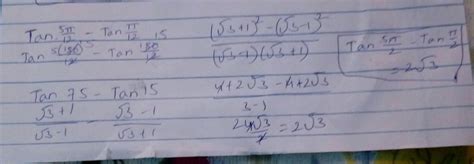 Tan 5π/12 - Tan π/12
Tan 5(180)/12 - Tan 180/12 15
Tan 75 - Tan 15
(√3+1)/(√3-1) (√3-1)/(√3+1)
((√3+1)² - (√3-1)²)/((√3-1)(√3+1))
(4+2√3 - 4+2√3)/(3-1)
4√3/2 = 2√3
Tan 5π/2 - Tan π/2
= 2√3